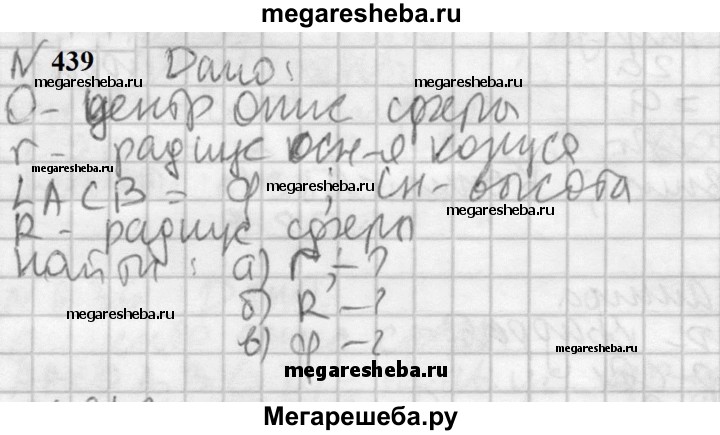 megaresheba.ru
№ 439 Дано:
megaresheba.ru megaresheba.ru
O - центр опис сферы
megaresheba.ru
r - радиус осн-я конуса
megaresheba.ru
∠ACB = φ ; CH - высота
megaresheba.ru
megaresheba.ru
R - радиус сферы
Найти: а) r, - ?
б) R - ?
megaresheba.ru megaresheba.ru
в) φ - ?
megaresheba.ru
megaresheba.ru
Мегарешеба.ру